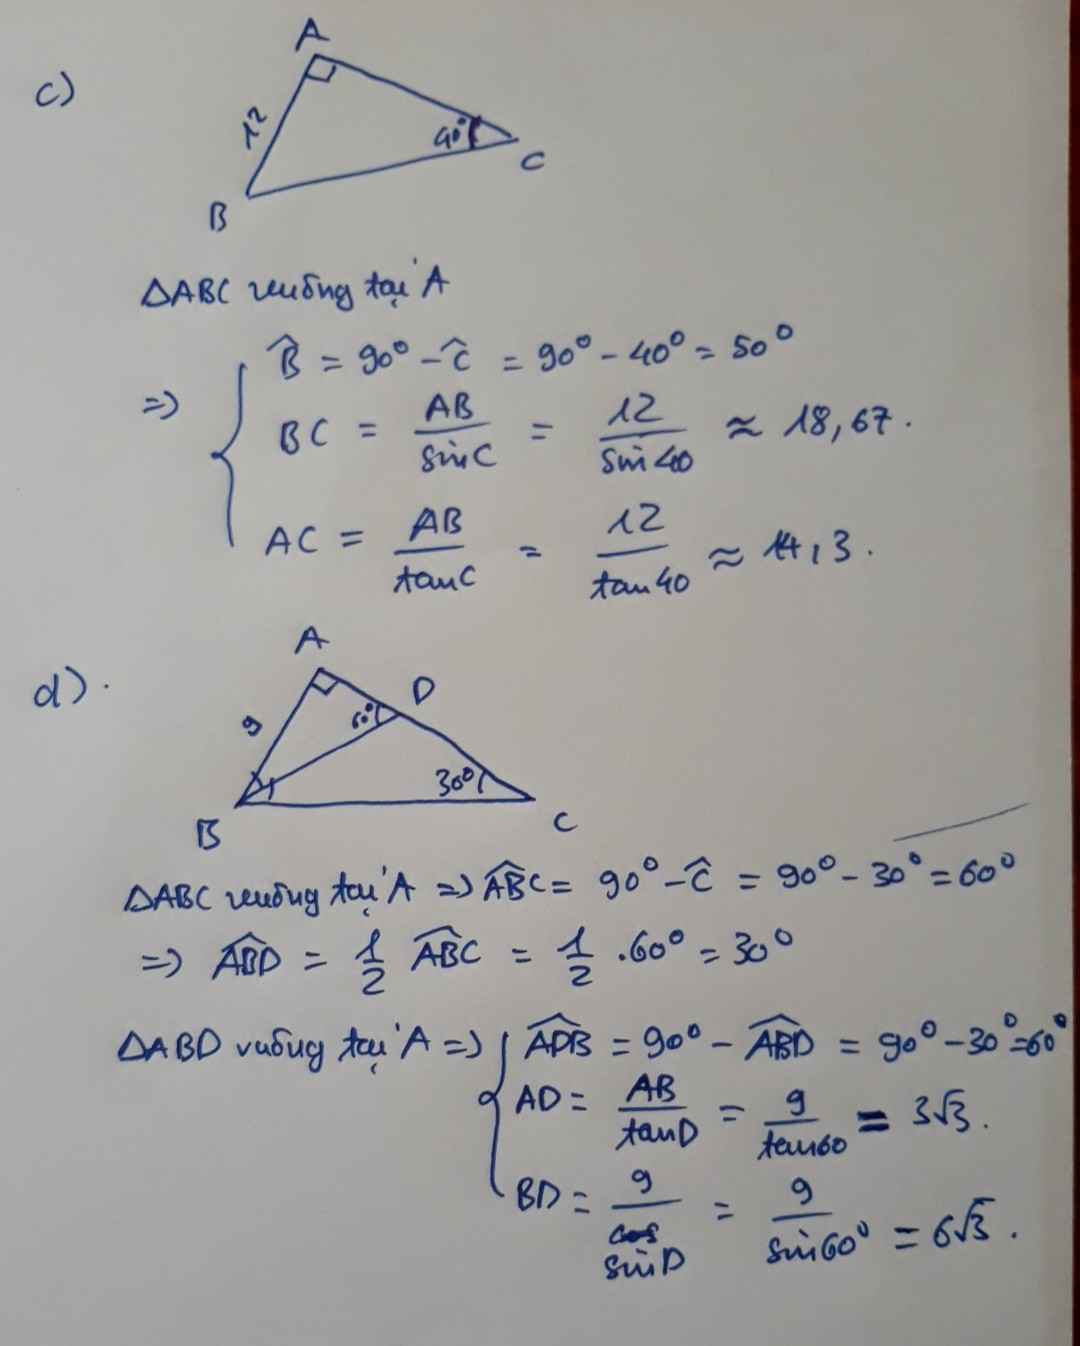 c)
A
12
40°
C
B
ΔABC vuông tại A
=> { B̂ = 90° - Ĉ = 90° - 40° = 50°
BC = AB/sinC = 12/sin40 ≈ 18,67.
AC = AB/tanC = 12/tan40 ≈ 14,3.
d).
A
D
9
60°
30°
B
C
ΔABC vuông tại A => ÂBC = 90° - Ĉ = 90° - 30° = 60°
=> ÂBD = 1/2 ÂBC = 1/2 .60° = 30°
ΔABD vuông tại A => { ÂDB = 90° - ÂBD = 90° - 30° = 60°
AD = AB/tanD = 9/tan60 = 3√3.
BD = 9/sinD = 9/sin60° = 6√3.